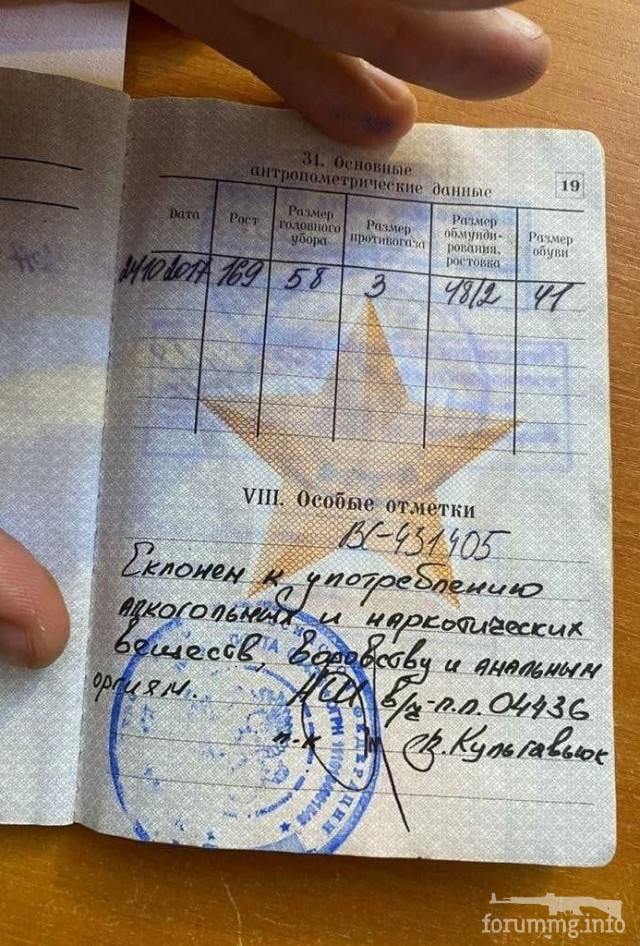 31. Основные
антропометрические данные
19
Дата
Рост
Размер
головного
убора
Размер
противогаза
Размер
обмунди-
рования,
ростовка
Размер
обуви
24102017 169 58 3 48/2 41
VIII. Особые отметки
ВС-431405
Склонен к употреблению
алкогольных и наркотических
веществ, воровству и анальным
оргиям. НШ в/ч-п.п. 04436
п-к Кульгавьюк
forummg.info